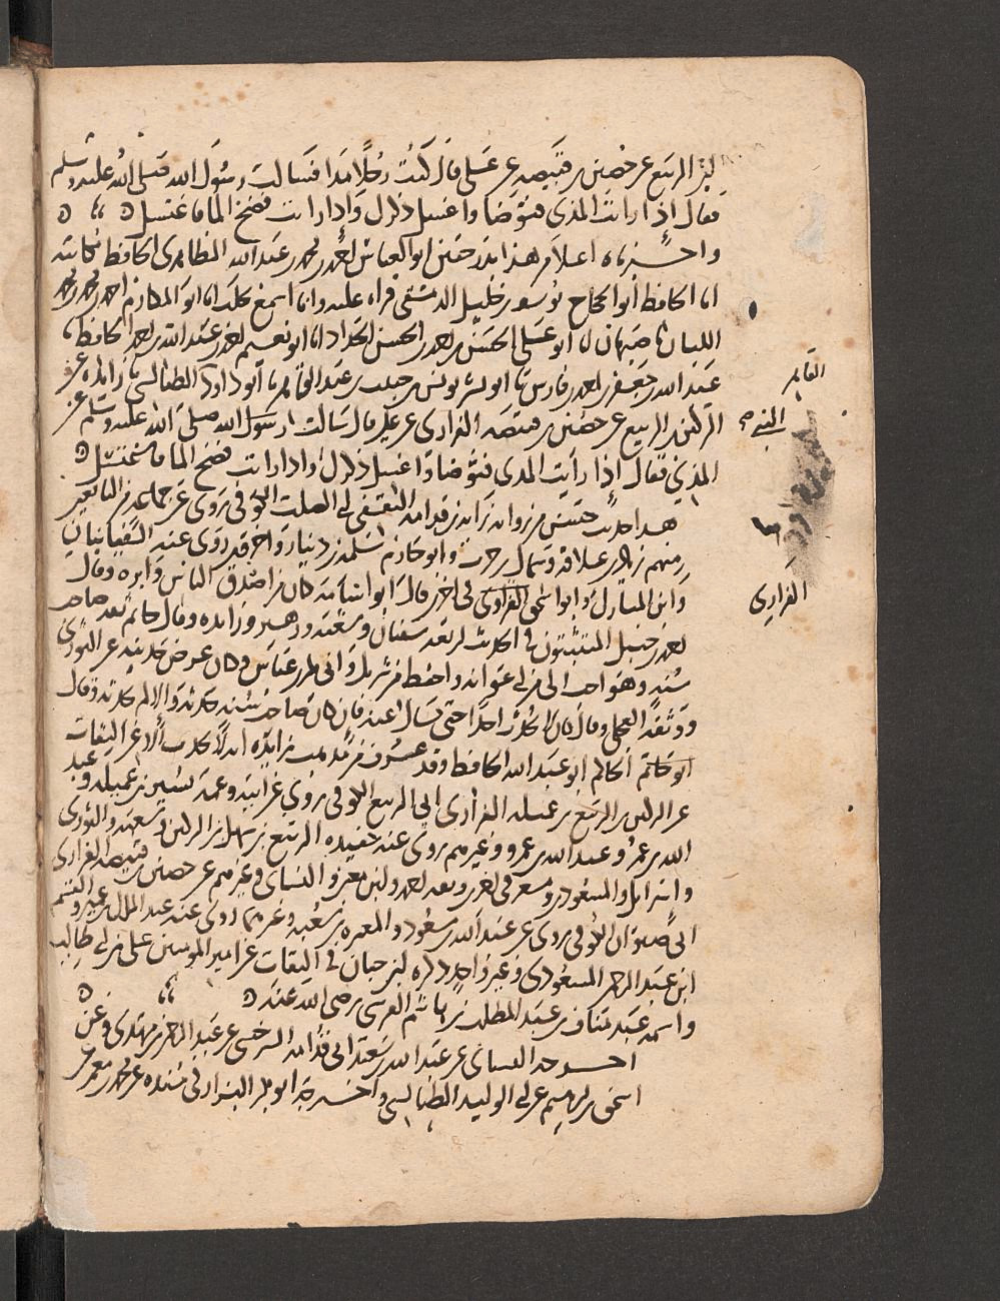 بن الربيع عن حصين بن قبيصة عن علي قال كنت رجلا مذا فسالت رسول الله صلى الله عليه وسلم
فقال إذا رايت المذي فتوضا واغسل ذكرك وإذا رايت فضخ الما فاغتسل
واخبرناه اعلا من هذا بدرجتين ابو العباس احمد بن محمد بن عبد الله الظاهري الحافظ كتابة
انا الحافظ أبو الحجاج يوسف بن خليل الدمشقي قراة عليه وانا اسمع بحلب انا ابو المكارم احمد بن محمد بن محمد
اللبان باصبهان انا ابو علي الحسن بن احمد بن الحسن الحداد انا ابو نعيم احمد بن عبد الله بن احمد الحافظ نا
عبد الله بن جعفر بن احمد بن فارس نا ابو بشر يونس بن حبيب بن عبد القاهر نا أبو داود الطيالسي نا زايدة عن
القاهر
الركين بن الربيع عن حصين بن قبيصة الفزاري عن علي قال سالت رسول الله صلى الله عليه وسلم عن
المني صح
المذي فقال إذا رأيت المذي فتوضا واغسل ذكرك وإذا رايت فضخ الما فاغتسل
هذا حديث حسن من رواية زايدة بن قدامة الثقفي ابي الصلت الكوفي روى عن جماعة من التابعين
منهم زياد بن علاقة وسماك بن حرب وابو حازم سلمة بن دينار واخر قد روى عنه السفيانان
وابن المبارك وابو اسحق الفزاوي في اخرين قال أبو اسامة كان من اصدق الناس وابره وقال
الفزاري
احمد بن حنبل المتثبتون في الحديث اربعة سفيان وشعبة وزهير وزايدة وقال حاتم ثقة صاحب
سنة وهو احب الي من ابي عوانة واحفظ من شريك وابي بكر بن عياش وكان عرض حديثه على الثوري
ووثقه العجلي وقال كان لا يحدث احدا حتى يسال عنه فان كان صاحب سنة حدثه والا لم يحدثه وقال
ابو حاتم الحاكم ابو عبد الله الحافظ وقد عرف من مذهب زايدة انه لا يحدث الا عن الثقات
عن الركين بن الربيع بن عميلة الفزاري ابي الربيع الكوفي روى عن ابيه وعمه يسير بن عميلة وعبد
الله بن عمر وعبد الله بن عمرو وغيرهم روى عنه حفيده الربيع بن سهل بن الركين وشعبة والثوري
واسرايل والمسعودي ومسعر في اخرين وثقه احمد وابن معين والنساي وغيرهم عن حصين بن قبيصة الفزاري
الى صوان الكوفي روى عن عبد الله بن مسعود والمغيرة بن شعبة وغيرهما روى عنه عبد الملك بن عمير والقسم
ابن عبد الرحمن المسعودي وغير واحد ذكره ابن حبان في الثقات عن امير المومنين علي بن ابي طالب
واسمه عبد مناف بن عبد المطلب بن هاشم القرشي رضي الله عنه
اخرجه النساي عن عبد الله بن سعيد ابي قدامة السرخسي عن عبد الرحمن بن مهدي وعن
اسحق بن ابرهيم عن ابي الوليد الطيالسي واخرجه ابو بكر البزار في مسنده عن محمد بن معمر عن